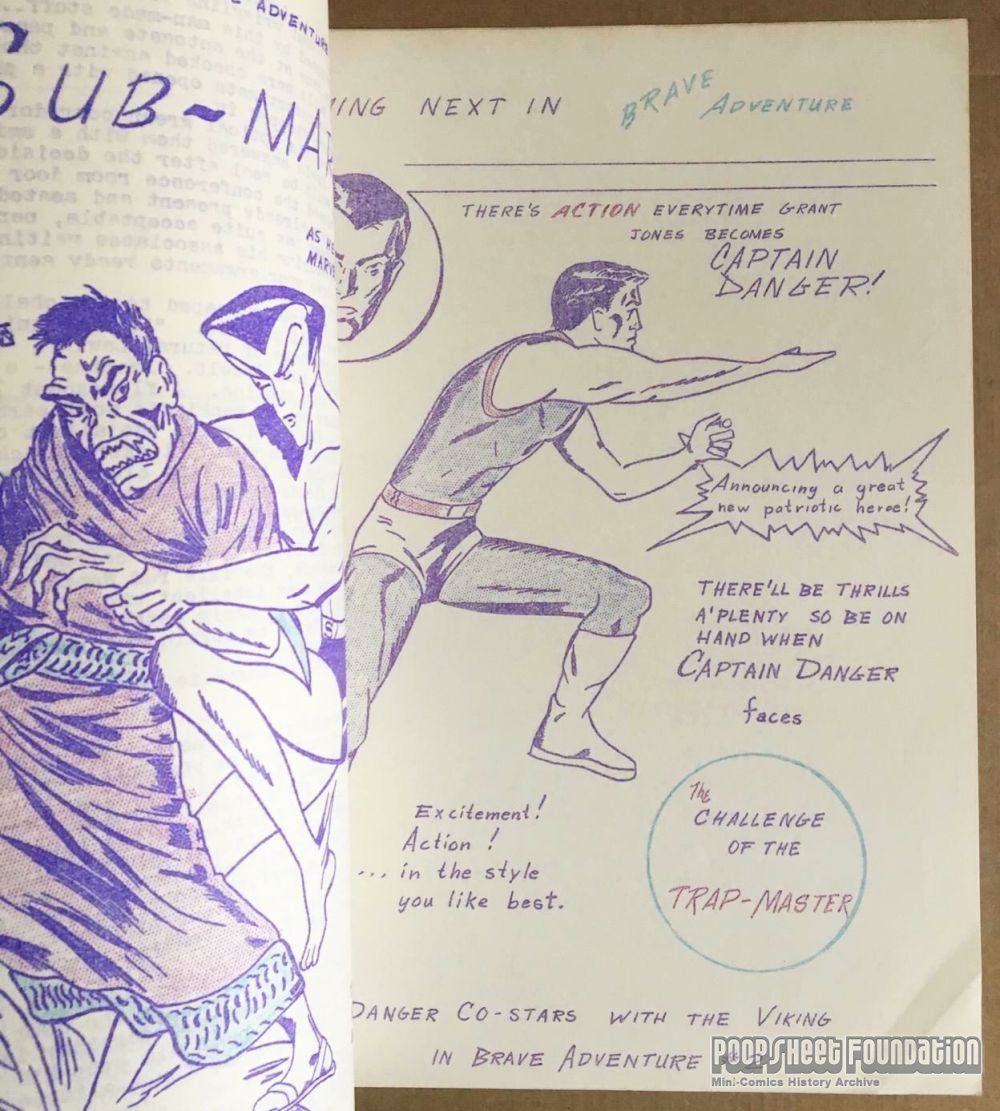 ADVENTURE
SUB-MAR
AS HE
MARVE
MING NEXT IN BRAVE ADVENTURE
THERE'S ACTION EVERYTIME GRANT
JONES BECOMES
CAPTAIN
DANGER!
Announcing a great
new patriotic heroe!
THERE'LL BE THRILLS
A'PLENTY SO BE ON
HAND WHEN
CAPTAIN DANGER
faces
The
CHALLENGE
OF THE
TRAP-MASTER
Excitement!
Action!
... in the style
you like best.
DANGER CO-STARS WITH THE VIKING
IN BRAVE ADVENTURE #2
POOPSHEET FOUNDATION
Mini-Comics History Archive